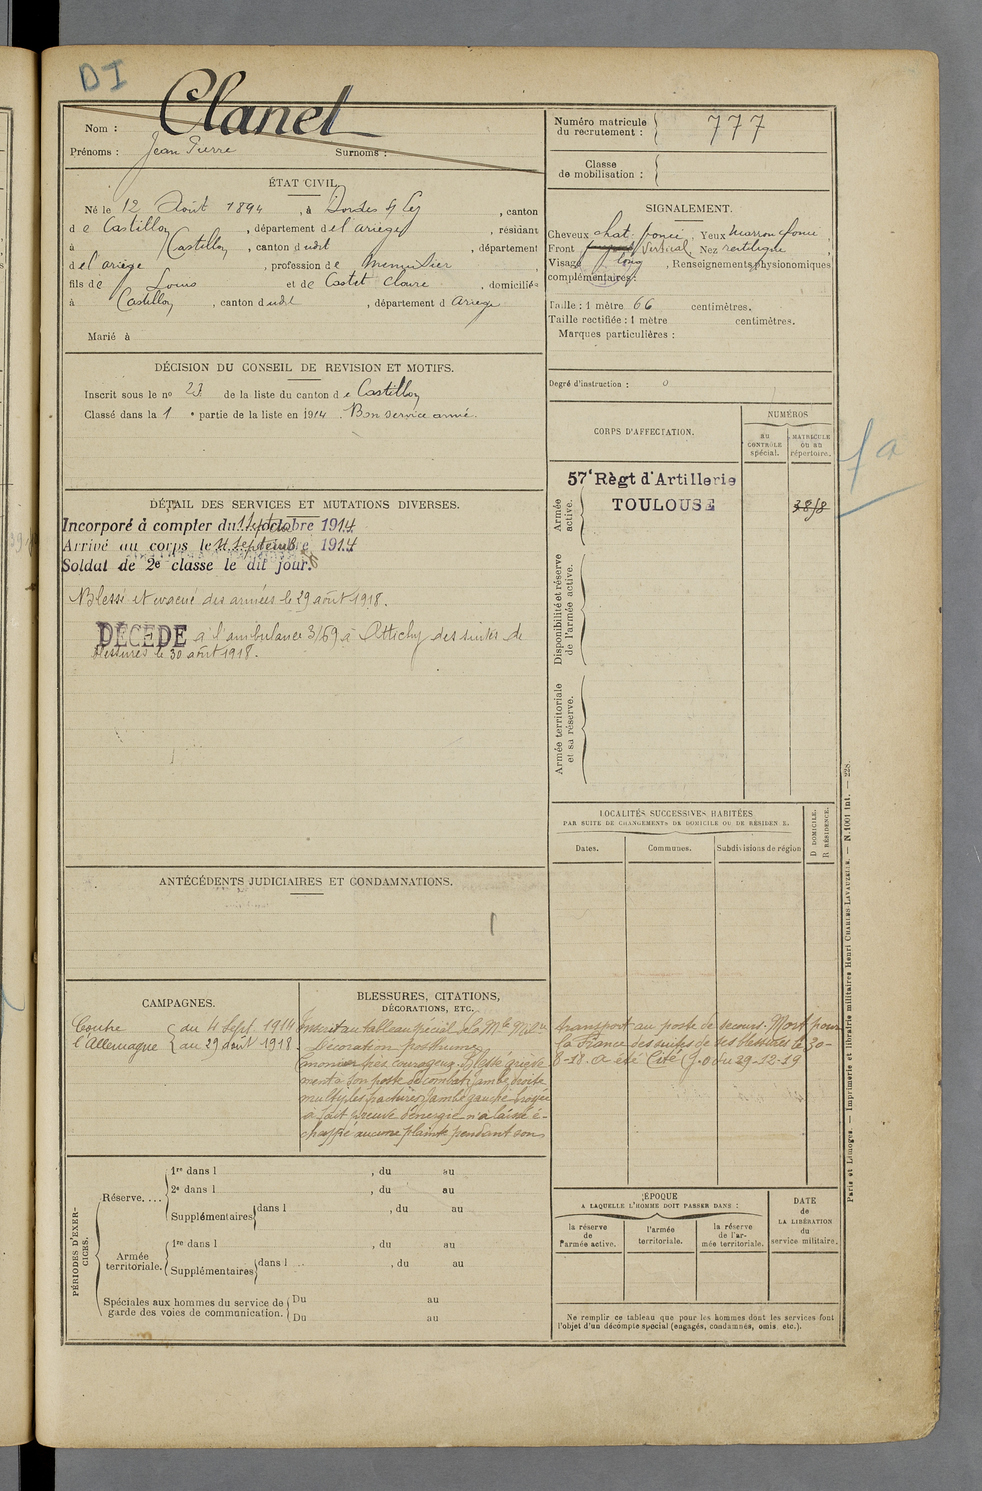 DI
Clanet
Nom :
Prénoms : Jean Pierre Surnoms :
Numéro matricule du recrutement : 777
Classe de mobilisation :
ÉTAT CIVIL.
Né le 12 Août 1894, à , canton
de Castillon, département de l'ariège, résidant
à Castillon, canton dudit, département
de l'ariège, profession de menuisier,
fils de Louis et de Castet Claire, domiciliés
à Castillon, canton dudit, département d Ariège
Marié à
SIGNALEMENT.
Cheveux chat. foncé, Yeux marron foncé,
Front vertical, Nez rectiligne
Visage long, Renseignements physionomiques
complémentaires :
Taille : 1 mètre 66 centimètres.
Taille rectifiée : 1 mètre centimètres.
Marques particulières :
Degré d'instruction : 0
DÉCISION DU CONSEIL DE REVISION ET MOTIFS.
Inscrit sous le no 23 de la liste du canton de Castillon
Classé dans la 1 e partie de la liste en 1914. Bon service armé.
CORPS D'AFFECTATION.
NUMÉROS
AU CONTROLE spécial.
MATRICULE OU AU répertoire.
Armée active.
57e Règt d'Artillerie
TOULOUSE
Disponibilité et réserve de l'armée active.
Armée territoriale et sa réserve.
DÉTAIL DES SERVICES ET MUTATIONS DIVERSES.
Incorporé à compter du 1914
Arrivé au corps le 4 septembre 1914
Soldat de 2e classe le dit jour.
Blessé et évacué des armées le 29 août 1918.
DÉCÉDÉ à l'ambulance 3/69 à Attichy des suites de
blessures le 30 août 1918.
LOCALITÉS SUCCESSIVES HABITÉES
PAR SUITE DE CHANGEMENTS DE DOMICILE OU DE RÉSIDENCE.
Dates.
Communes.
Subdivisions de région
D. DOMICILE.
R. RÉSIDENCE.
ANTÉCÉDENTS JUDICIAIRES ET CONDAMNATIONS.
CAMPAGNES.
Contre l'Allemagne
du 4 Sept. 1914
au 29 août 1918
BLESSURES, CITATIONS,
DÉCORATIONS, ETC.
Inscrit au tableau spécial de la Mlle Milre
Décoration posthume
Canonnier très courageux. Blessé griève
ment à son poste de combat, jambe droite
multiples fractures, jambe gauche broyée
a fait preuve d'énergie n'a laissé é-
chappé aucune plainte pendant son
transport au poste de secours. Mort pour
la France des suites de ses blessures le 30-
8-18. A été Cité J.O du 29-12-19
PÉRIODES D'EXERCICES.
Réserve....
1re dans l , du au
2e dans l , du au
Supplémentaires dans l , du au
Armée territoriale.
1re dans l , du au
Supplémentaires dans l , du au
Spéciales aux hommes du service de
garde des voies de communication.
Du au
Du au
ÉPOQUE
A LAQUELLE L'HOMME DOIT PASSER DANS :
la réserve de l'armée active.
l'armée territoriale.
la réserve de l'armée territoriale.
DATE de LA LIBÉRATION du service militaire.
Ne remplir ce tableau que pour les hommes dont les services font
l'objet d'un décompte spécial (engagés, condamnés, omis, etc.).
Paris et Limoges. — Imprimerie et librairie militaires Henri CHARLES-LAVAUZELLE. — N. 1001 int. — 228.